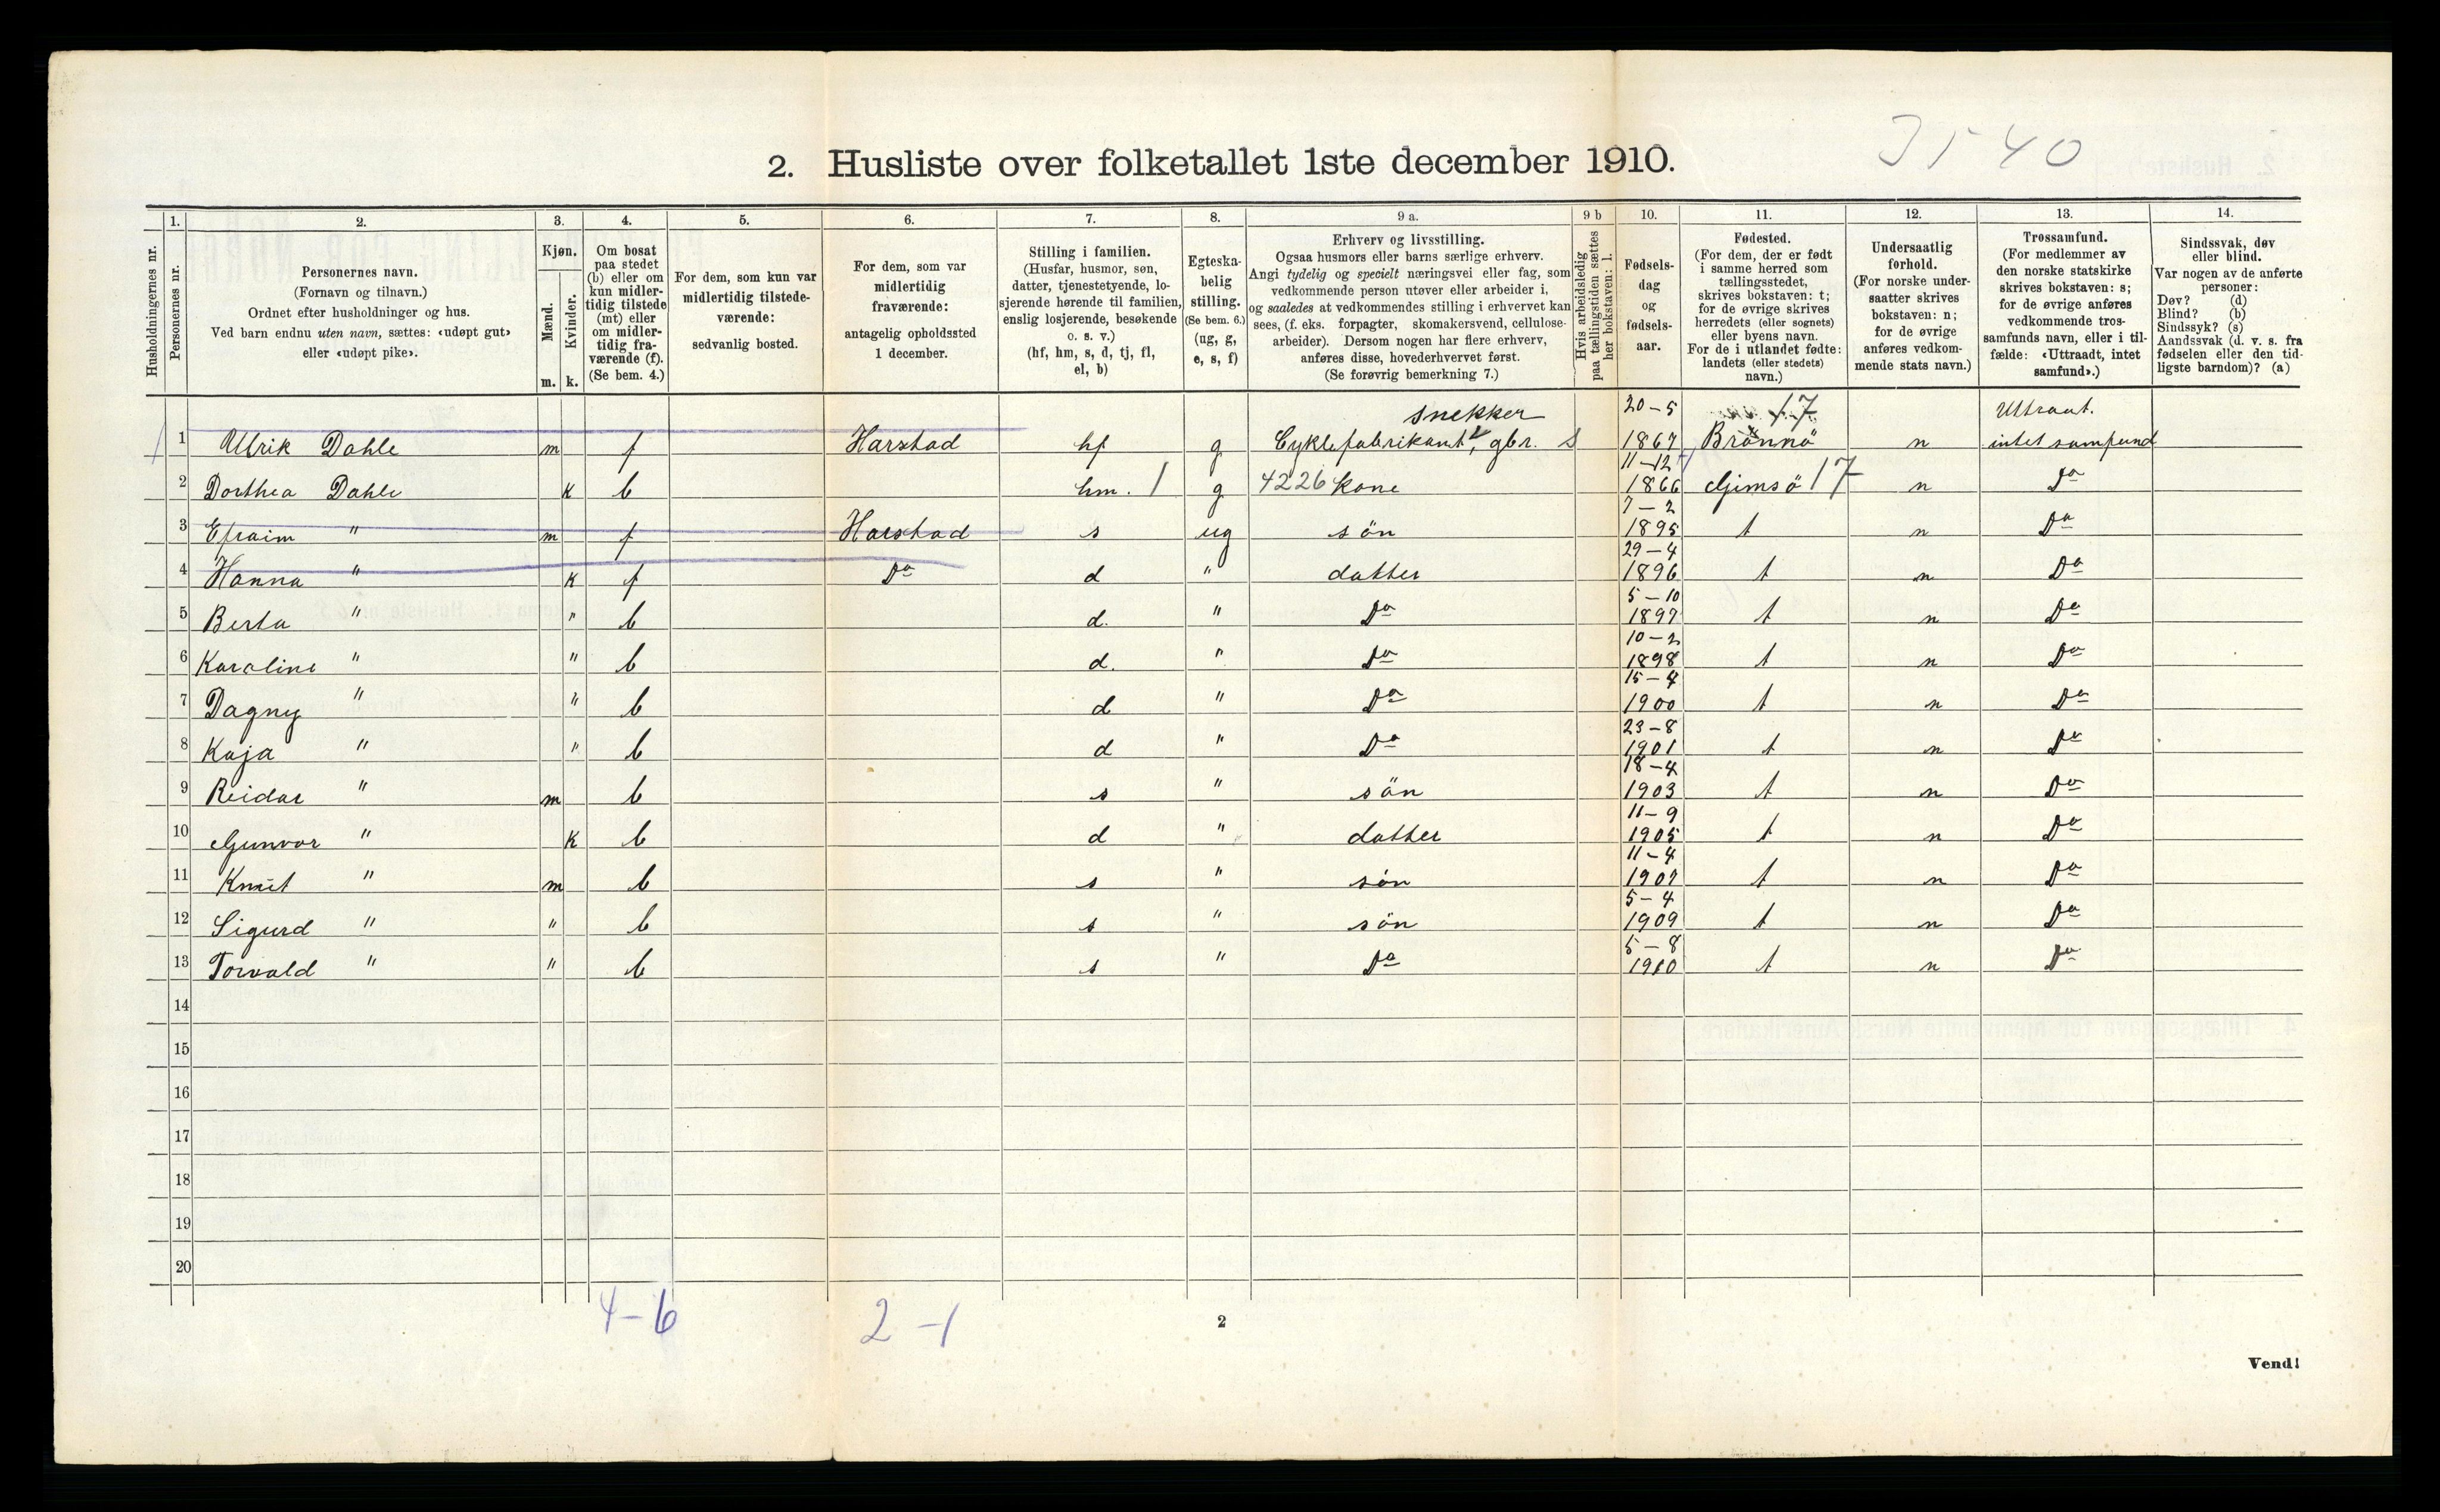 3540
2. Husliste over folketallet 1ste december 1910.
1. 2. 3. 4. 5. 6. 7. 8. 9 a. 9 b 10. 11. 12. 13. 14.
Husholdningernes nr.
Personernes nr.
Personernes navn.
(Fornavn og tilnavn.)
Ordnet efter husholdninger og hus.
Ved barn endnu uten navn, sættes: «udøpt gut»
eller «udøpt pike».
Kjøn.
Mænd.
Kvinder.
m. k.
Om bosat
paa stedet
(b) eller om
kun midler-
tidig tilstede
(mt) eller
om midler-
tidig fra-
værende (f).
(Se bem. 4.)
For dem, som kun var
midlertidig tilstede-
værende:
sedvanlig bosted.
For dem, som var
midlertidig
fraværende:
antagelig opholdssted
1 december.
Stilling i familien.
(Husfar, husmor, søn,
datter, tjenestetyende, lo-
sjerende hørende til familien,
enslig losjerende, besøkende
o. s. v.)
(hf, hm, s, d, tj, fl,
el, b)
Egteska-
belig
stilling.
(Se bem. 6.)
(ug, g,
e, s, f)
Erhverv og livsstilling.
Ogsaa husmors eller barns særlige erhverv.
Angi tydelig og specielt næringsvei eller fag, som
vedkommende person utøver eller arbeider i,
og saaledes at vedkommendes stilling i erhvervet kan
sees, (f. eks. forpagter, skomakersvend, cellulose-
arbeider). Dersom nogen har flere erhverv,
anføres disse, hovederhvervet først.
(Se forøvrig bemerkning 7.)
Hvis arbeidsledig
paa tællingstiden sættes
her bokstaven: l.
Fødsels-
dag
og
fødsels-
aar.
Fødested.
(For dem, der er født
i samme herred som
tællingsstedet,
skrives bokstaven: t;
for de øvrige skrives
herredets (eller sognets)
eller byens navn.
For de i utlandet fødte:
landets (eller stedets)
navn.)
Undersaatlig
forhold.
(For norske under-
saatter skrives
bokstaven: n;
for de øvrige
anføres vedkom-
mende stats navn.)
Trossamfund.
(For medlemmer av
den norske statskirke
skrives bokstaven: s;
for de øvrige anføres
vedkommende tros-
samfunds navn, eller i til-
fælde: «Uttraadt, intet
samfund».)
Sindssvak, døv
eller blind.
Var nogen av de anførte
personer:
Døv? (d)
Blind? (b)
Sindssyk? (s)
Aandssvak (d. v. s. fra
fødselen eller den tid-
ligste barndom)? (a)
snekker 20-5 17 Uttraat.
1 Ulrik Dahle m f Harstad hf g Cyklefabrikant, gbr. S 1867 Brønnö n intet samfund
11-12
2 Dorthea Dahle k b hm. 1 g 4226 kone 1866 Gimsö 17 n Do
7-2
3 Efraim " m f Harstad s ug sön 1895 t n Do
29-4
4 Hanna " k f Do d " datter 1896 t n Do
5-10
5 Berta " " b d. " Do 1897 t n Do
10-2
6 Karoline " " b d. " Do 1898 t n Do
15-4
7 Dagny " " b d " Do 1900 t n Do
23-8
8 Kaja " " b d " Do 1901 t n Do
18-4
9 Reidar " m b s " sön 1903 t n Do
11-9
10 Gunvor " k b d " datter 1905 t n Do
11-4
11 Knut " m b s " sön 1907 t n Do
5-4
12 Sigurd " " b s " sön 1909 t n Do
5-8
13 Torvald " " b s " Do 1910 t n Do
14
15
16
17
18
19
20
4-6 2-1
2
Vend!